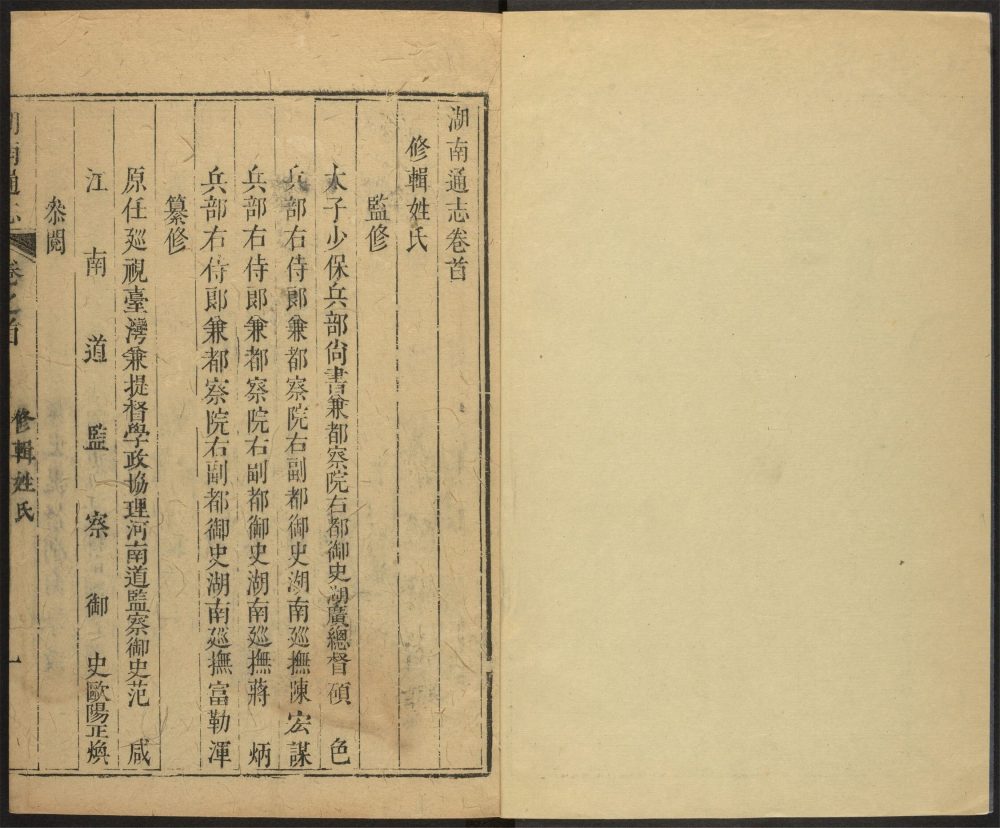 湖南通志卷首
修輯姓氏
監修
太子少保兵部尙書兼都察院右都御史湖廣總督碩　色
兵部右侍郞兼都察院右副都御史湖南廵撫陳宏謀
兵部右侍郞兼都察院右副都御史湖南廵撫蔣　炳
兵部右侍郞兼都察院右副都御史湖南廵撫富勒渾
纂修
原任廵視臺灣兼提督學政協理河南道監察御史范　咸
江南道監察御史歐陽正煥
叅閱
湖南通志　卷之首　修輯姓氏　一